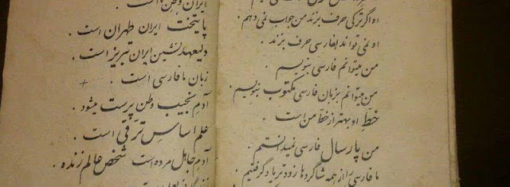 او اگر ترکی حرف بزند من جواب نمی دهم .
او نمی تواند بفارسی حرف بزند .
من میتوانم فارسی بنویسم .
من میتوانم بزبان فارسی مکتوب بنویسم .
خط او بهتر از خط من است .
من پارسال فارسی نمیدانستم .
ما فارسی را از همه شاگردها زودتر یاد گرفتیم .
ایران وطن است .
پایتخت ایران طهران است .
ولیعهد نشین ایران تبریز است .
زبان ما فارسی است .
آدم نجیب وطن پرست میشود .
علم اساس ترقی است .
آدم جاهل مرده است شخص عالم زنده .